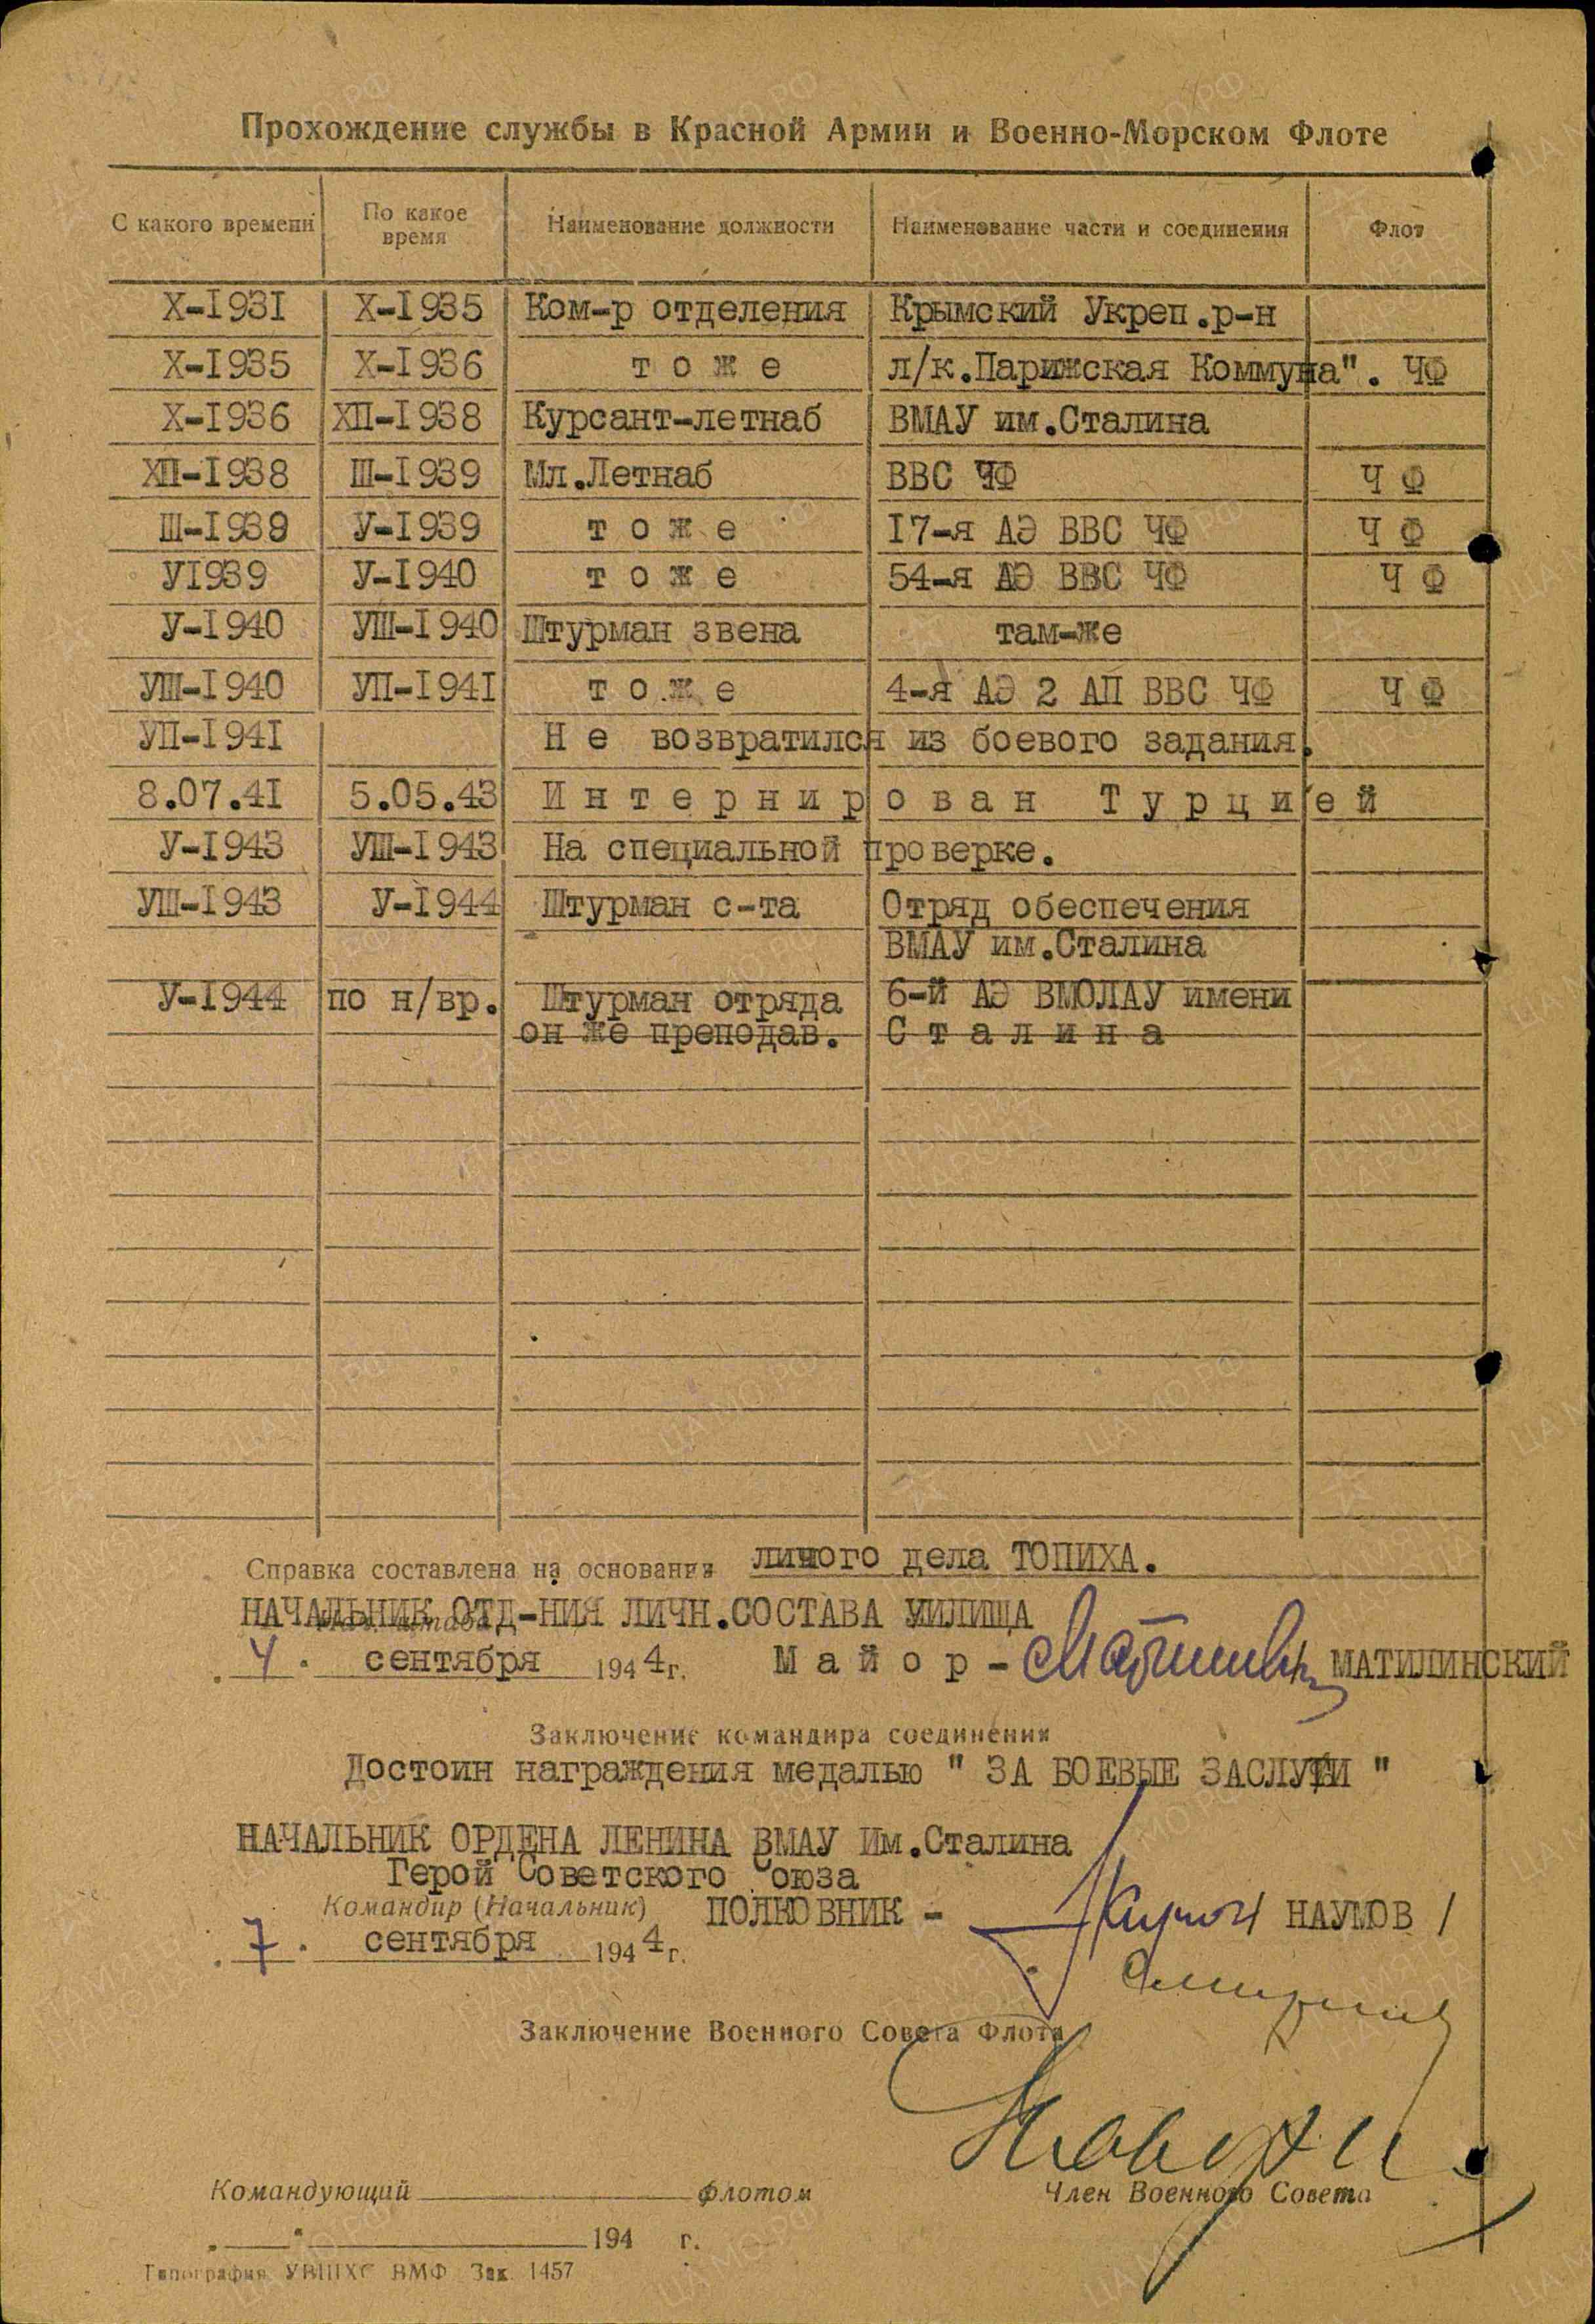 Прохождение службы в Красной Армии и Военно-Морском Флоте
С какого времени По какое время Наименование должности Наименование части и соединения Флот
X-1931 X-1935 Ком-р отделения Крымский Укреп.р-н
X-1935 X-1936 т о ж е л/к.Парижская Коммуна". ЧФ
X-1936 ХП-1938 Курсант-летнаб ВМАУ им.Сталина
ХП-1938 Ш-1939 Мл.Летнаб ВВС ЧФ Ч Ф
Ш-1939 У-1939 т о ж е 17-я АЭ ВВС ЧФ Ч Ф
У1939 У-1940 т о ж е 54-я АЭ ВВС ЧФ Ч Ф
У-1940 УШ-1940 Штурман звена там-же
УШ-1940 УП-1941 т о ж е 4-я АЭ 2 АП ВВС ЧФ Ч Ф
УП-1941 Н е возвратился из боевого задания.
8.07.41 5.05.43 И н т е р н и р о в а н Т у р ц и е й
У-1943 УШ-1943 На специальной проверке.
УШ-1943 У-1944 Штурман с-та Отряд обеспечения
ВМАУ им.Сталина
У-1944 по н/вр. Штурман отряда 6-й АЭ ВМОЛАУ имени
он же преподав. С т а л и н а
Справка составлена на основании личого дела ТОПИХА.
НАЧАЛЬНИК ОТД-НИЯ ЛИЧН.СОСТАВА УИЛИЩА
4 сентября 1944г. М а й о р - МАТИЛИНСКИЙ
Заключение командира соединения
Достоин награждения медалью " ЗА БОЕВЫЕ ЗАСЛУГИ "
НАЧАЛЬНИК ОРДЕНА ЛЕНИНА ВМАУ Им.Сталина
Герой Советского Союза
Командир (Начальник) ПОЛКОВНИК - / НАУМОВ /
7 сентября 1944г.
Заключение Военного Совета Флота
Командующий флотом Член Военного Совета
" " 194 г.
Типография УВШХС ВМФ Зак. 1457